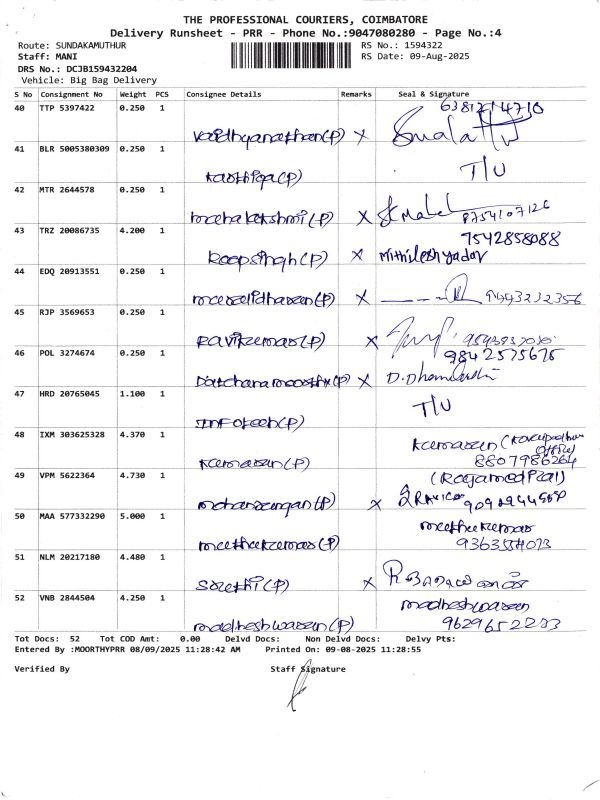 THE PROFESSIONAL COURIERS, COIMBATORE
Delivery Runsheet - PRR - Phone No.:9047080280 - Page No.:4
Route: SUNDAKAMUTHUR RS No.: 1594322
Staff: MANI RS Date: 09-Aug-2025
DRS No.: DCJB159432204
Vehicle: Big Bag Delivery
S No Consignment No Weight PCS Consignee Details Remarks Seal & Signature
40 TTP 5397422 0.250 1
Vaidhyanathan(P) X
41 BLR 5005380309 0.250 1 T/U
Karthiga(P)
42 MTR 2644578 0.250 1
mahalakshmi(P) X 8754107126
43 TRZ 20086735 4.200 1 7542858088
Roopsingh(P) X Mithilesh yadav
44 EDQ 20913551 0.250 1
muralidharan(P) X
45 RJP 3569653 0.250 1
Ravikumar(P) X
46 POL 3274674 0.250 1 9842575675
Datchanamoorthy(P) X
47 HRD 20765045 1.100 1 T/U
Infotech(P)
48 IXM 303625328 4.370 1 Kumaran
Kumaran(P) 8807986264
49 VPM 5622364 4.730 1
mohansengan(P) X
50 MAA 577332290 5.000 1 muthukumar
muthukumar(P)
51 NLM 20217180 4.480 1
Sruthi(P) X
52 VNB 2844504 4.250 1 madheshwaran
madheshwaran(P) 9629652233
Tot Docs: 52 Tot COD Amt: 0.00 Delvd Docs: Non Delvd Docs: Delvy Pts:
Entered By :MOORTHYPRR 08/09/2025 11:28:42 AM Printed On: 09-08-2025 11:28:55
Verified By Staff Signature